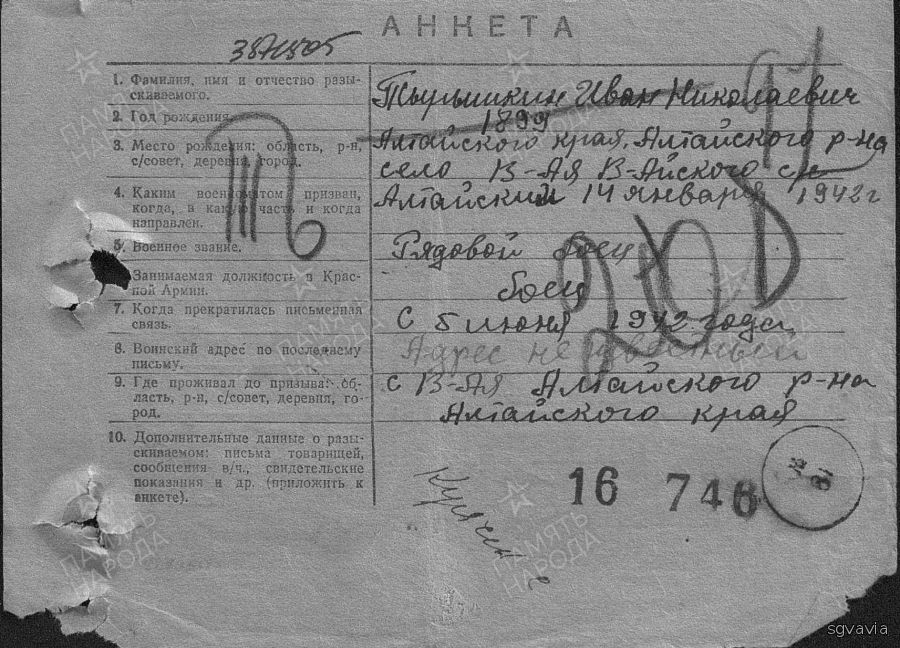 АНКЕТА
1. Фамилия, имя и отчество разы-
скиваемого.
Тырышкин Иван Николаевич
2. Год рождения.
1899
3. Место рождения: область, р-н,
с/совет, деревня, город.
Алтайского края, Алтайского р-на
село В-Ая В-Айского с/с
4. Каким военкоматом призван,
когда, в какую часть и когда
направлен.
Алтайским 14 января 1942 г
5. Военное звание.
Рядовой боец
6. Занимаемая должность в Крас-
ной Армии.
боец
7. Когда прекратилась письменная
связь.
С 5 июня 1942 года
8. Воинский адрес по последнему
письму.
Адрес неизвестный
9. Где проживал до призыва: об-
ласть, р-н, с/совет, деревня, го-
род.
с В-Ая Алтайского р-на
Алтайского края
10. Дополнительные данные о разы-
скиваемом: письма товарищей,
сообщения в/ч., свидетельские
показания и др. (приложить к
анкете).
16 746
ПАМЯТЬ
НАРОДА
sgvavia